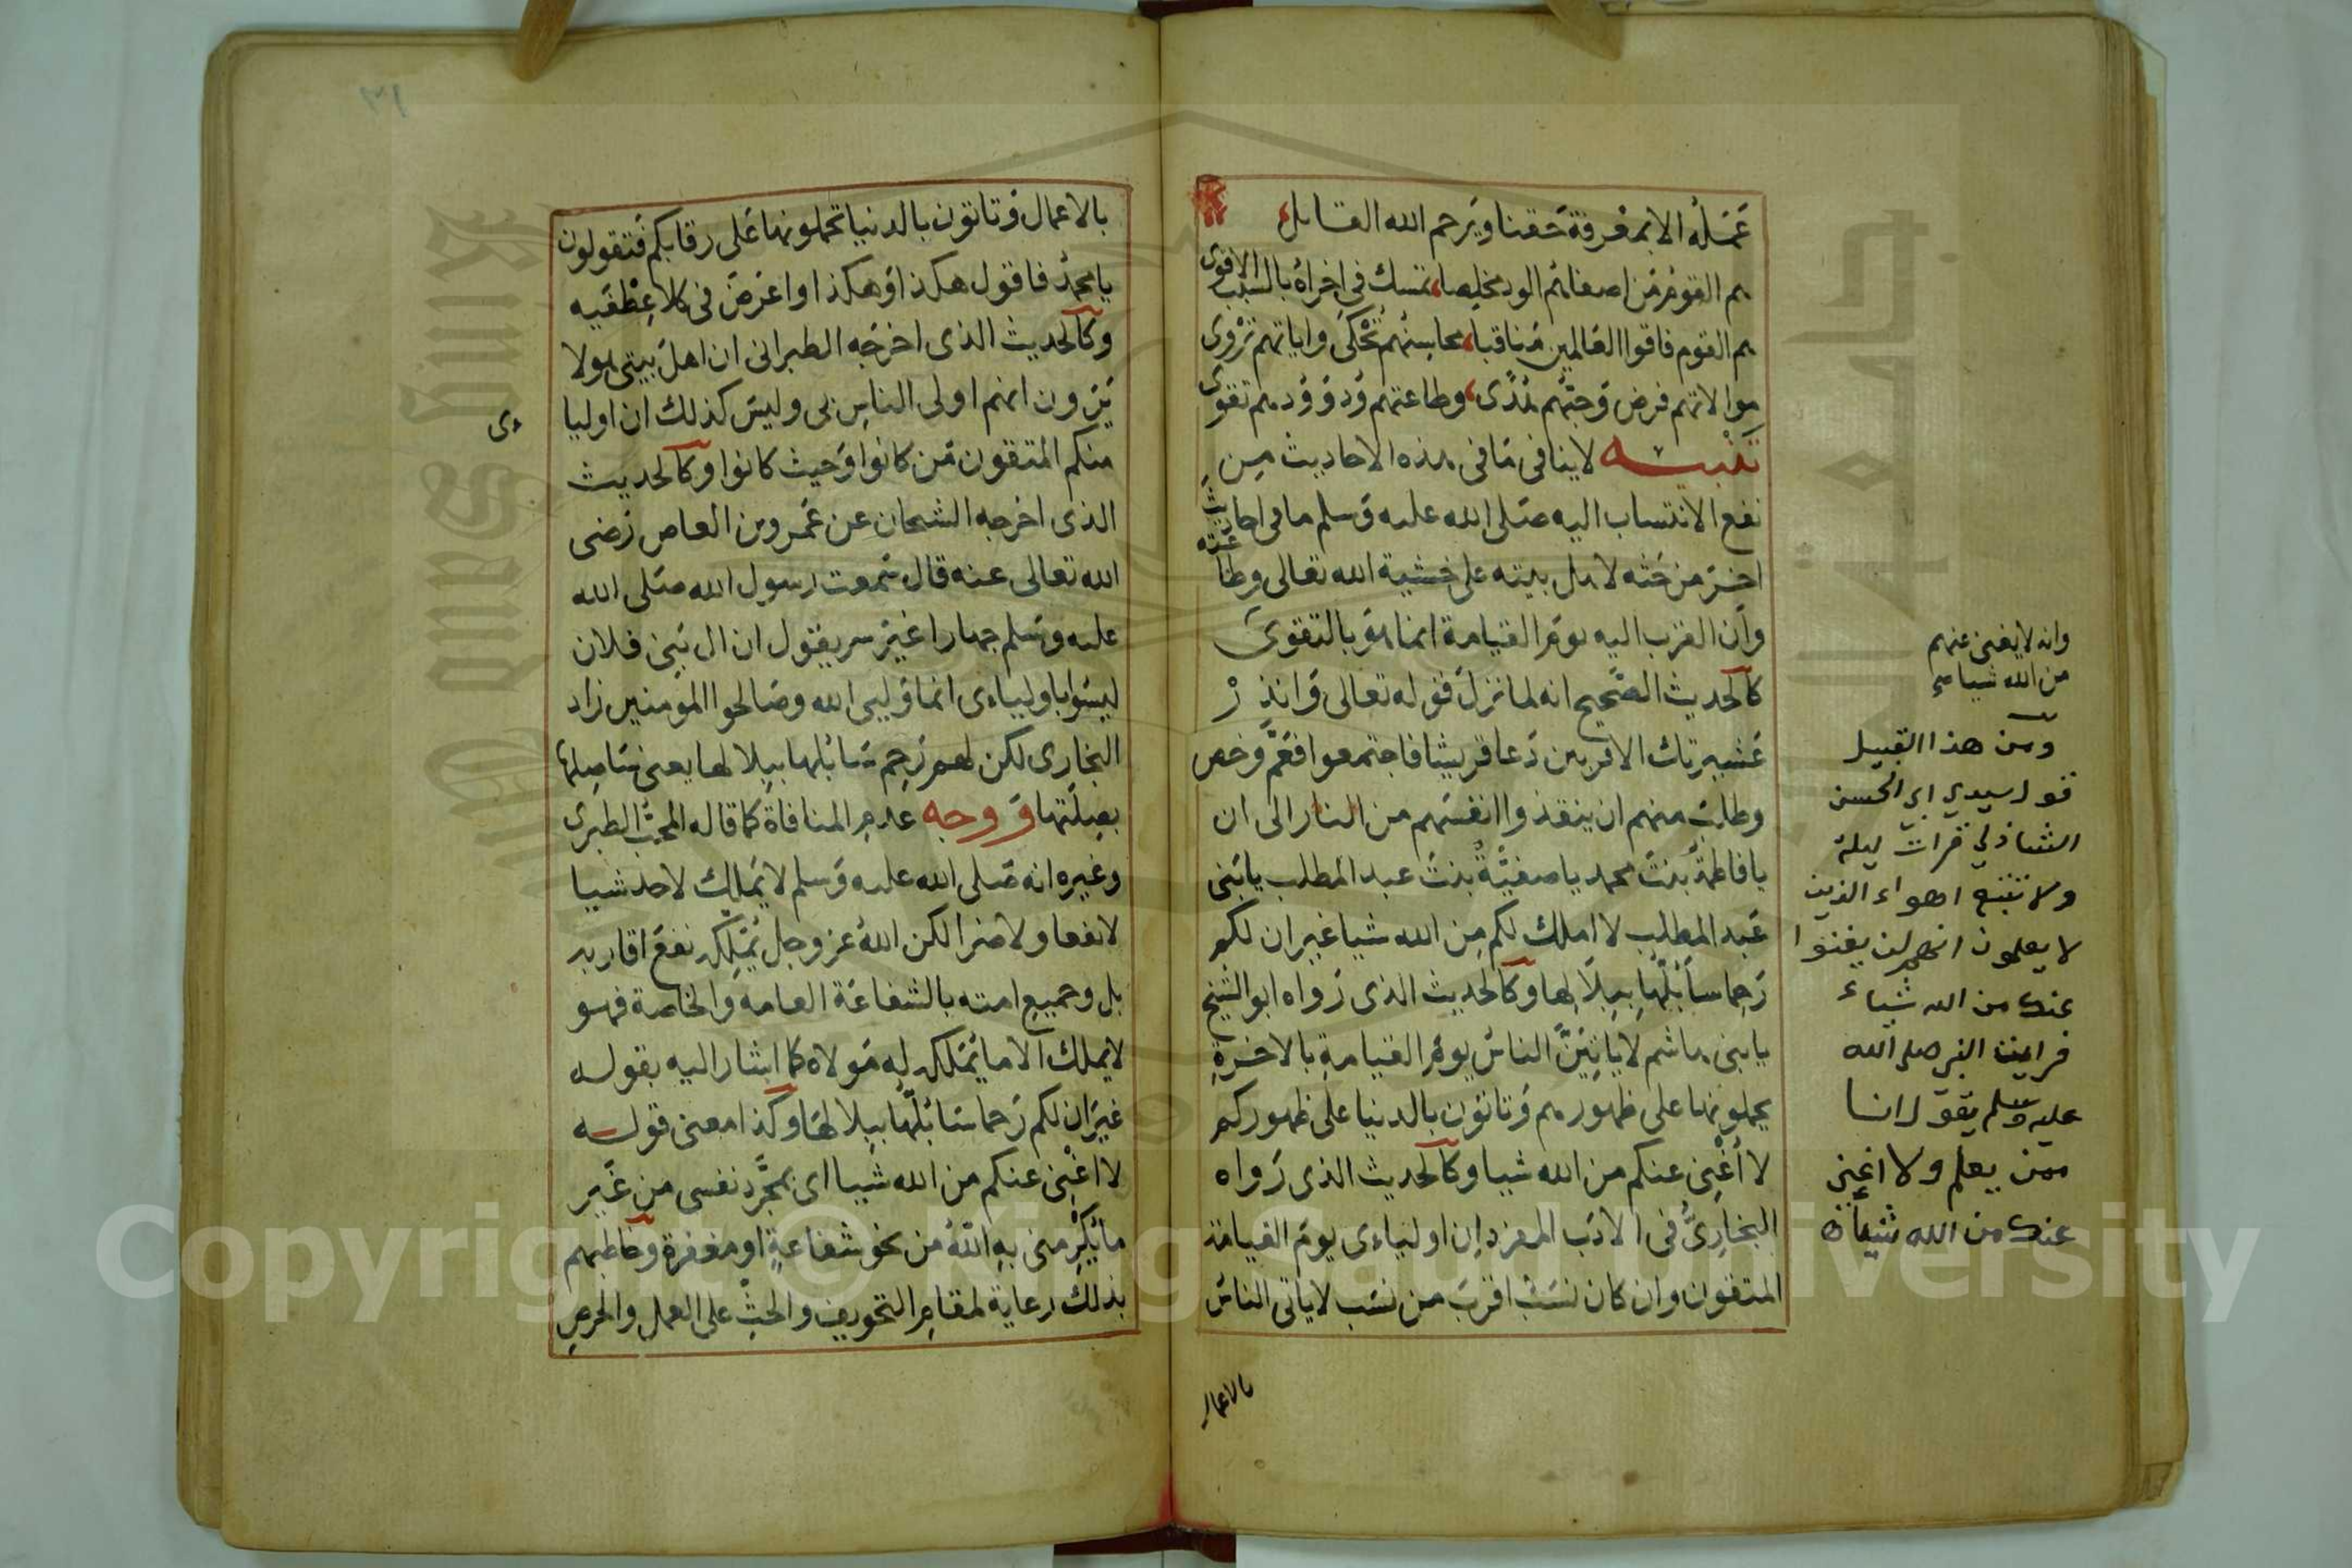 عمله الا بمفرقة حقنا ويرحم الله القائل
هم القوم من اصفاهم الود مخلصا تمسك في اخراه بالسبب الاقوى
هم القوم فاقوا العالمين مناقبا محاسنهم تحكى واياتهم تروى
موالاتهم فرض وحبهم هدى وطاعتهم ود وودهم تقوى
تنبيه لا ينافى ما فى هذه الاحاديث من
نفع الانتساب اليه صلى الله عليه وسلم ما فى احاديث
اخر من حثه لاهل بيته على خشية الله تعالى وطاعته
وان القرب اليه يوم القيامة انما هو بالتقوى
كالحديث الصحيح انه لما نزل قوله تعالى وانذر
عشيرتك الاقربين دعا قريشا فاجتمعوا فعم وخص
وطلب منهم ان ينقذوا انفسهم من النار الى ان
يا فاطمة بنت محمد يا صفية بنت عبد المطلب يا بنى
عبد المطلب لا املك لكم من الله شيا غير ان لكم
رحما سابلها ببلالها وكالحديث الذى رواه ابو الشيخ
يا بنى هاشم لا ياتين الناس يوم القيامة بالاخرة
يحملونها على ظهورهم وتاتون بالدنيا على ظهوركم
لا اغنى عنكم من الله شيا وكالحديث الذى رواه
البخارى فى الادب المفرد ان اولياءى يوم القيامة
المتقون وان كان نسب اقرب من نسب لا ياتى الناس
بالاعمال
وانه لا يغنى عنهم
من الله شيا صح
ومن هذا القبيل
قول سيدي ابي الحسن
الشاذلي قرات ليلة
ولا تتبع اهواء الذين
لا يعلمون انهم لن يغنوا
عنك من الله شياء
فرايت النبي صلى الله
عليه وسلم يقول انا
ممن يعلم ولا اغني
عنك من الله شيأ
٣١
بالاعمال وتاتون بالدنيا تحملونها على رقابكم فتقولون
يا محمد فاقول هكذا وهكذا واعرض فى كلا عطفيه
وكالحديث الذى اخرجه الطبرانى ان اهل بيتى هولا
يرون انهم اولى الناس بى وليس كذلك ان اوليا
ءى
منكم المتقون من كانوا وحيث كانوا وكالحديث
الذى اخرجه الشيخان عن عمرو بن العاص رضى
الله تعالى عنه قال سمعت رسول الله صلى الله
عليه وسلم جهارا غير سر يقول ان ال بنى فلان
ليسوا باولياءى انما وليى الله وصالحوا المومنين زاد
البخارى لكن لهم رحم سابلها ببلالها يعنى ساصلها
بصلتها ووجه عدم المنافاة كما قاله المحب الطبرى
وغيره انه صلى الله عليه وسلم لا يملك لاحد شيا
لا نفعا ولا ضرا لكن الله عز وجل يملكه نفع اقاربه
بل وجميع امته بالشفاعة العامة والخاصة فهو
لا يملك الا ما يملكه له مولاه كما اشار اليه بقوله
غير ان لكم رحما سابلها ببلالها وكذا معنى قوله
لا اغنى عنكم من الله شيا اى بمجرد نفسى من غير
ما يكرمنى به الله من نحو شفاعة او مغفرة وخاطبهم
بذلك رعاية لمقام التخويف والحث على العمل والحرص
Copyright © King Saud University